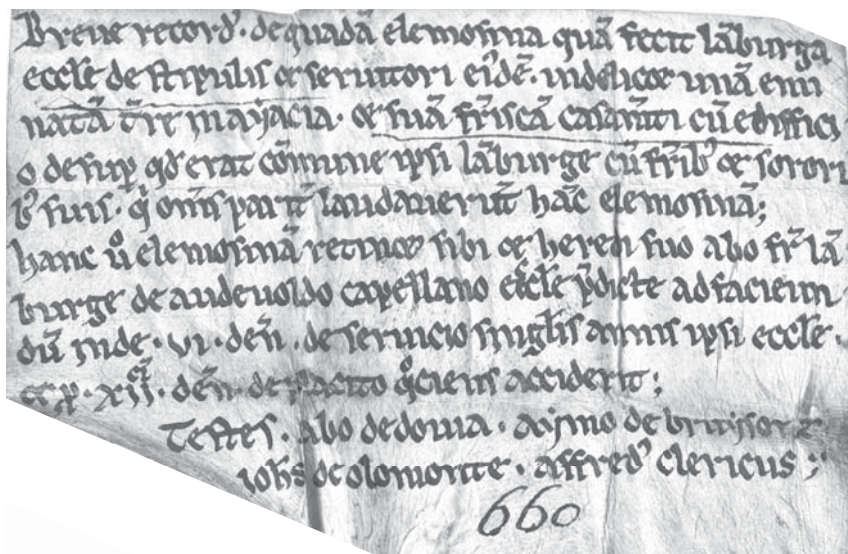 Breue record᷒ · de quadā elemosina quā fecit lāburga
eccl̄e de stipulis ⁊ seruitori eiꝰdē · uidelicet unā emi
natā t̄re in aẏacia · ⁊ suā friscā casam̄ti cū ediffici
o desup̱ qd̓ erat cōmune ipsi lāburge cū fr̄ib᷒ ⁊ sorori
b᷒ suis · q̓ om̄s parit̄ laudauerūt hāc elemosinā ;
hanc ů elemosinā retinuit sibi ⁊ heredi suo abo fr̄ lā
burge de andeuoldo capellano eccl̄e p̄dicte ad facien
dū inde · vi · den̄ · de seruicio singl̄is annis ipsi eccl̄e ·
⁊ p̱ · xii · den̄ · de placito qͦciens acciderit ;
Testes · abo dedoma · aẏmo de bruẏsore
ioh̄s de olomonte · affred᷒ clericus ;
660